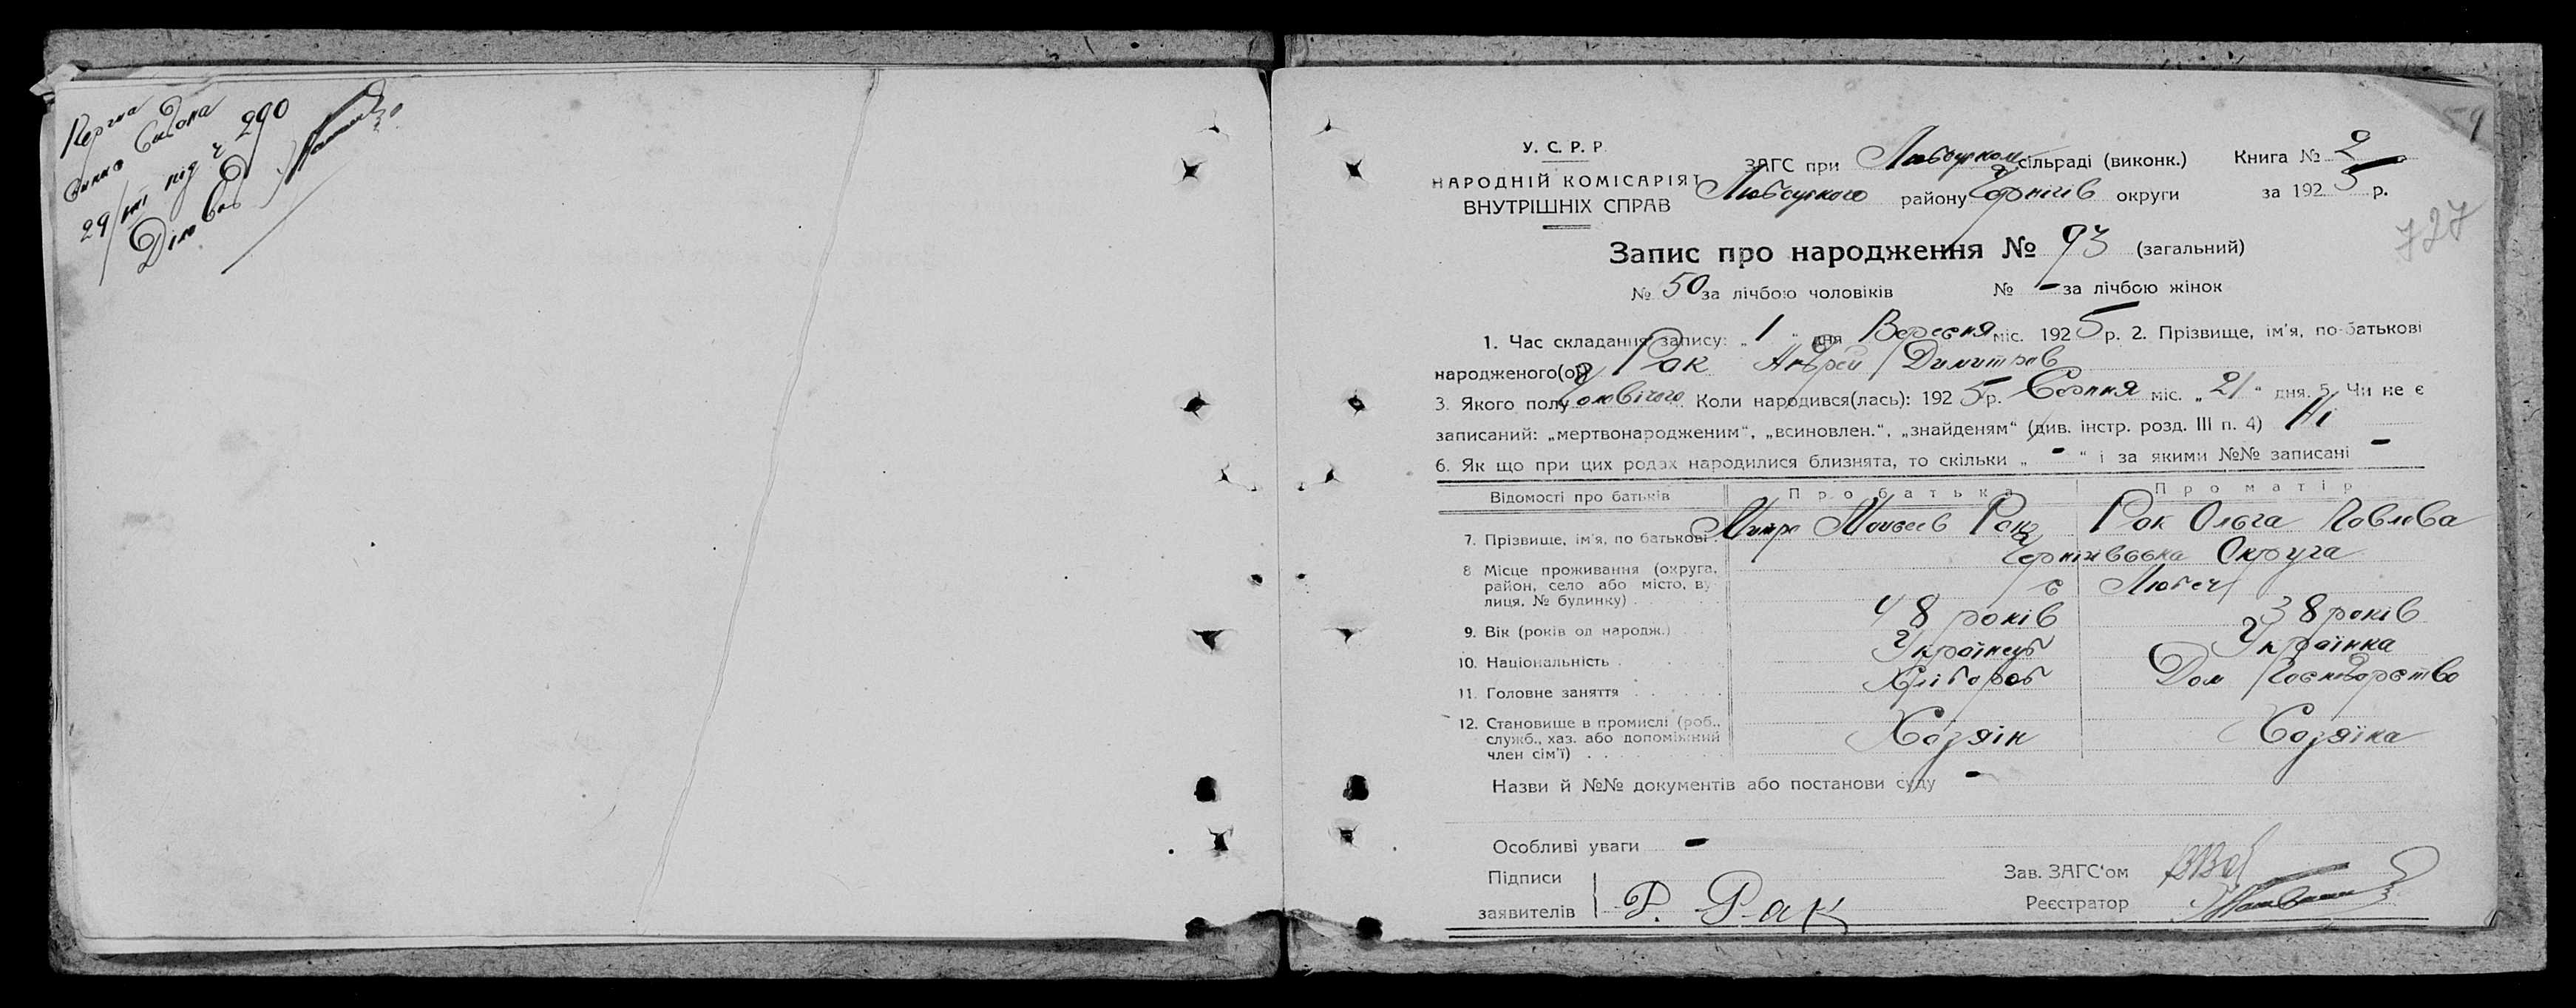 290
29/VIII під ч
59
У. С. Р. Р.
НАРОДНІЙ КОМІСАРІЯТ
ВНУТРІШНІХ СПРАВ
ЗАГС при Любецком сільраді (виконк.) Книга № 2
Любецкого району Чернігів округи за 1925 р.
727
Запис про народження № 93 (загальний)
№ 50 за лічбою чоловіків № - за лічбою жінок
1. Час складання запису: „ 1 " дня Вересня міс. 1925 р. 2. Прізвище, ім'я, по-батькові
народженого(ої) Рак Андрей Димитров
3. Якого полу Чоловічого Коли народився(лась): 1925 р. Серпня міс. „ 21 " дня. 5. Чи не є
записаний: „мертвонародженим", „всиновлен.", „знайденям" (див. інстр. розд. III п. 4) Ні
6. Як що при цих родах народилися близнята, то скільки „ - " і за якими №№ записані -
Відомості про батьків Про батька Про матір
7. Прізвище, ім'я, по батькові . Митро Моисеев Рак Рак Ольга Павлова
8 Місце проживання (округа, район, село або місто, вулиця, № будинку) . Чернігівська Округа
с Любеч
9. Вік (років од народж.) 48 років 38 років
10. Національність . Українець Українка
11. Головне заняття . Хлібороб Дом Господарство
12. Становище в промислі (роб., служб., хаз. або допоміжний член сім'ї) . Хозяін Хозяїка
Назви й №№ документів або постанови суду -
Особливі уваги -
Підписи
заявителів Р. Рак
Зав. ЗАГС'ом
Реєстратор